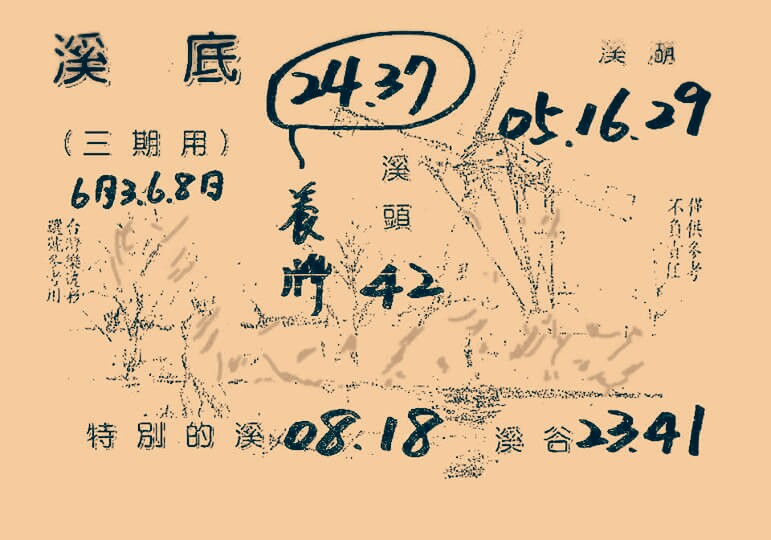 溪底
24.37
溪湖
05.16.29
(三期用)
6月3.6.8日
溪頭
42
養牌
台灣樂透彩
選號參考用
僅供參考
不負責任
特別的溪 08.18
溪谷 23.41